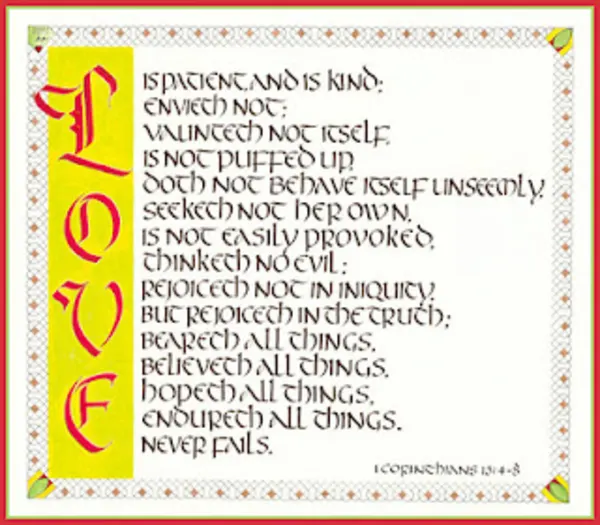 LOVE
IS PATIENT, AND IS KIND;
ENVIETH NOT;
VAUNTETH NOT ITSELF,
IS NOT PUFFED UP,
DOTH NOT BEHAVE ITSELF UNSEEMLY,
SEEKETH NOT HER OWN,
IS NOT EASILY PROVOKED,
THINKETH NO EVIL;
REJOICETH NOT IN INIQUITY,
BUT REJOICETH IN THE TRUTH;
BEARETH ALL THINGS,
BELIEVETH ALL THINGS,
HOPETH ALL THINGS,
ENDURETH ALL THINGS.
NEVER FAILS.
I CORINTHIANS 13:4-8